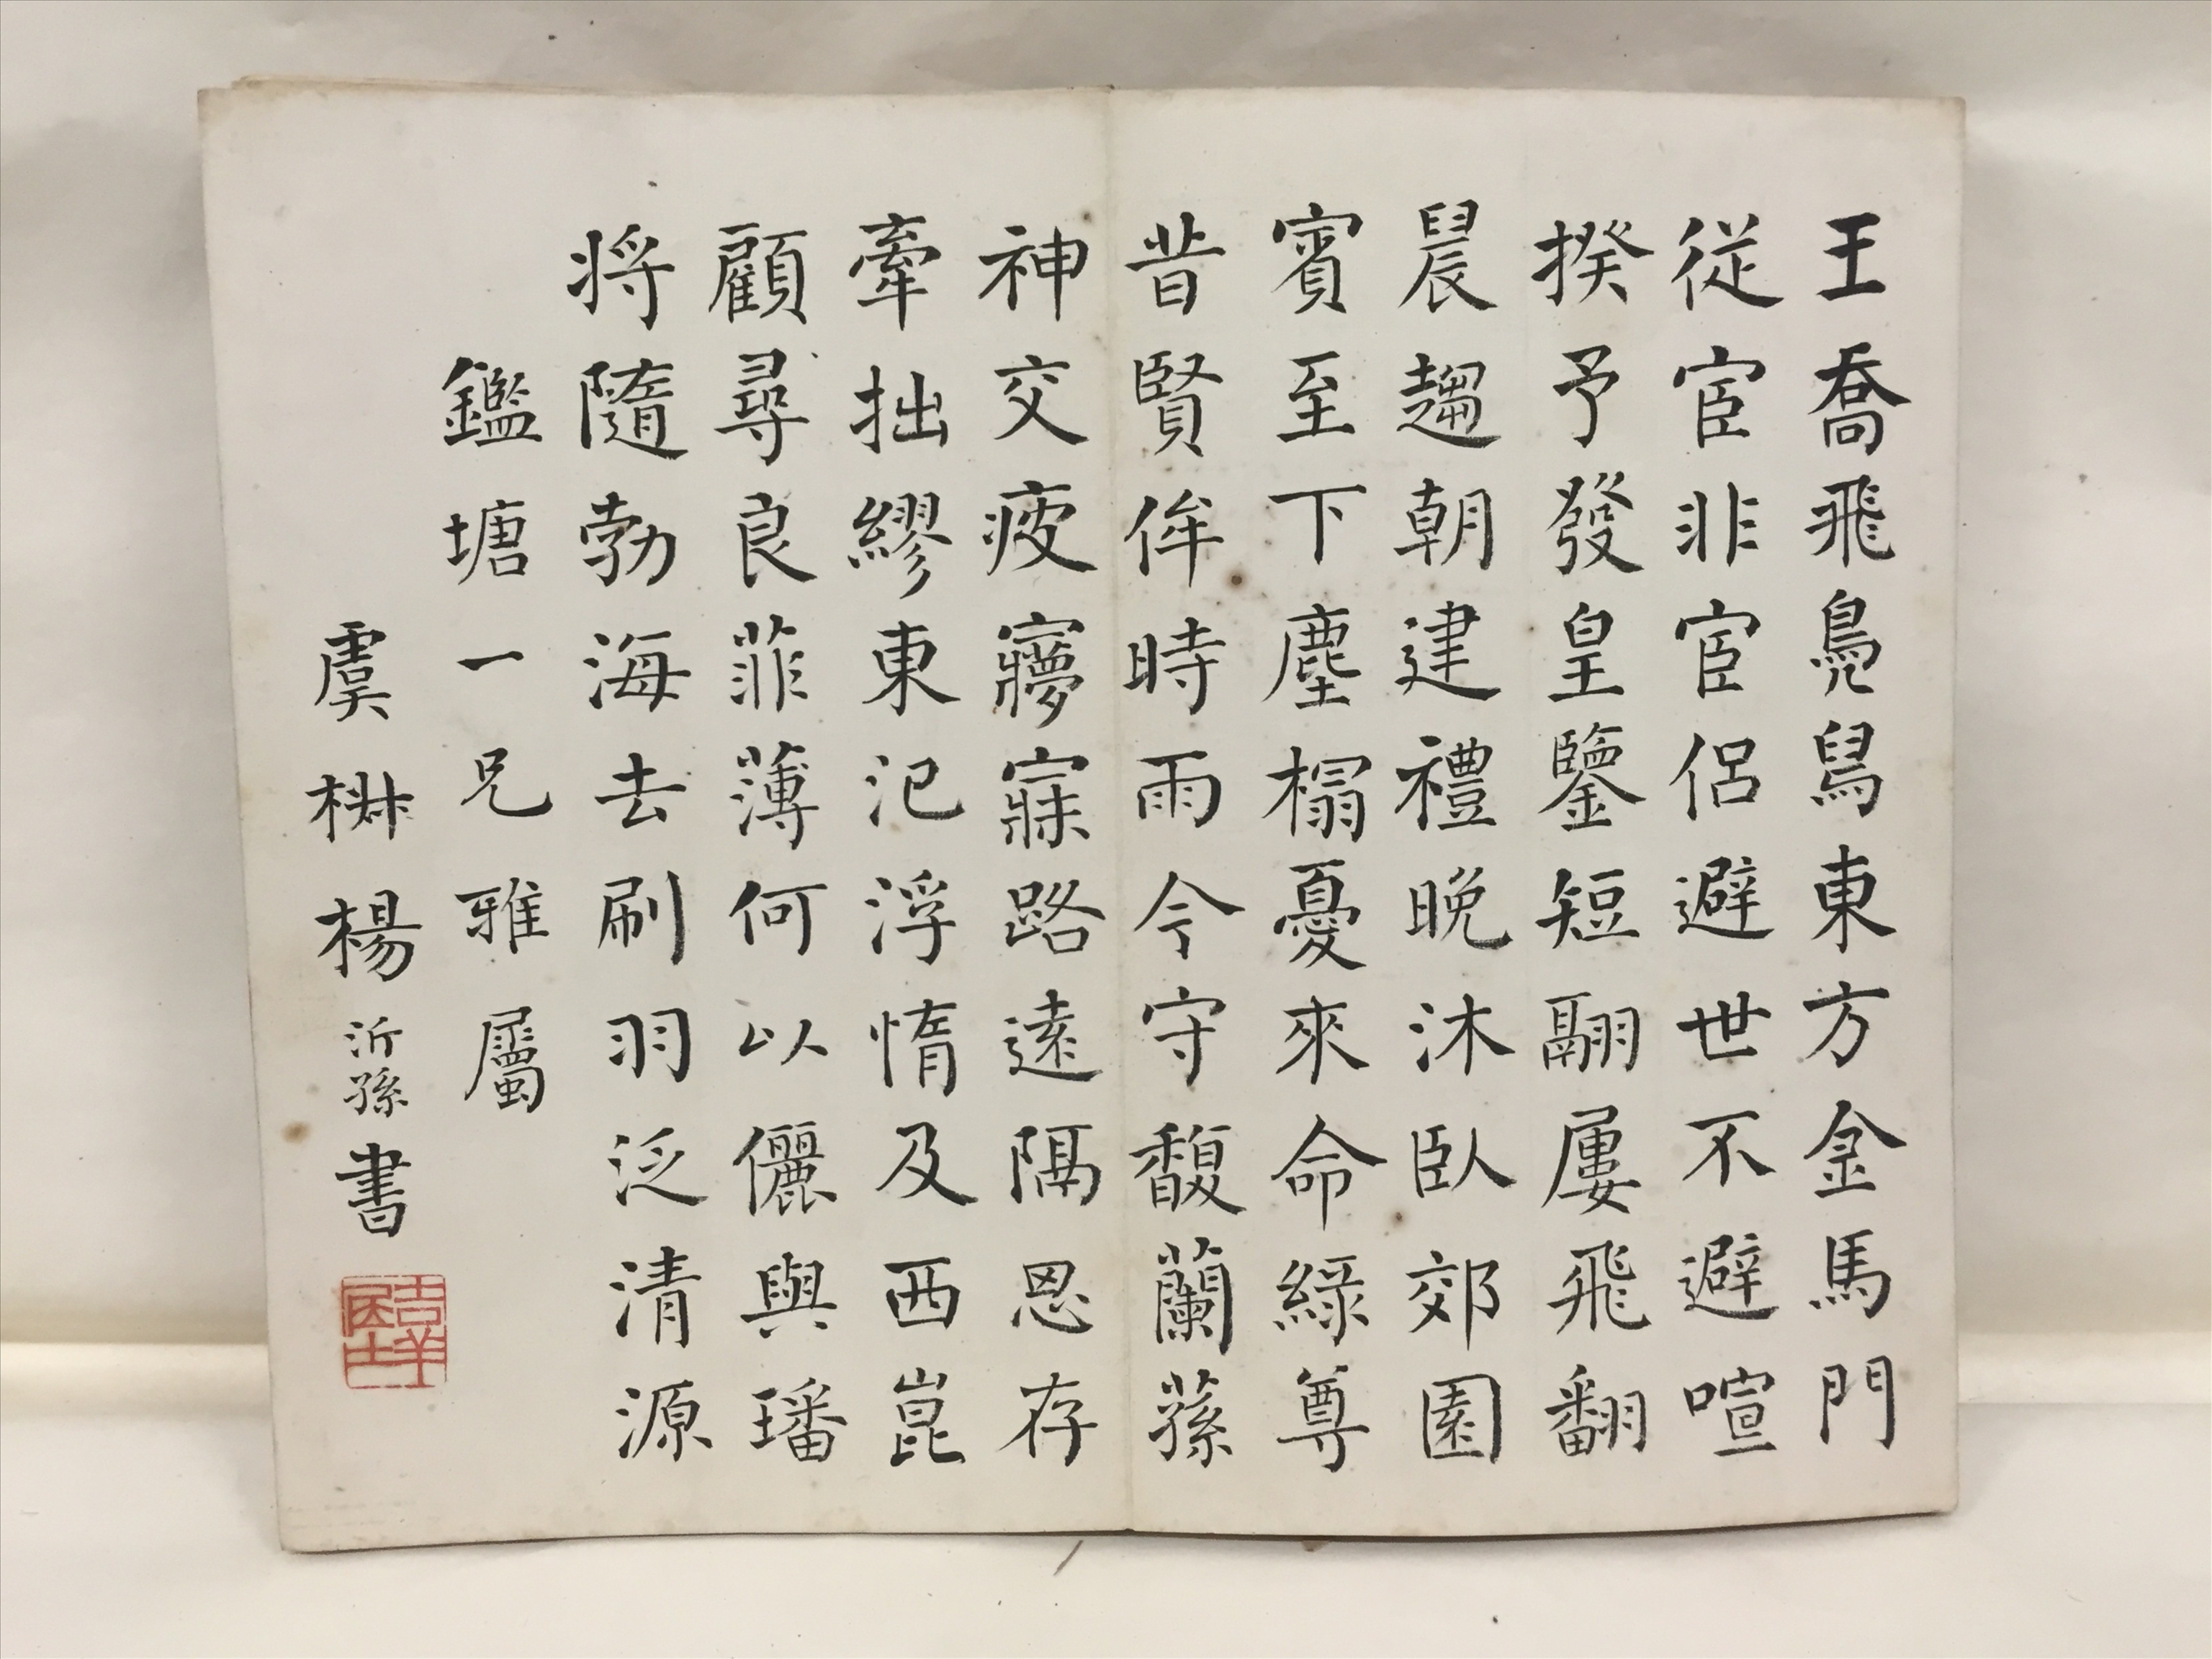 王喬飛鳧舄東方金馬門
從宦非宦侶避世不避喧
揆予發皇鑒短翮屢飛翻
晨趨朝建禮晚沐臥郊園
賓至下塵榻憂來命綠尊
昔賢侔時雨今守馥蘭蓀
神交疲夢寐路遠隔思存
牽拙繆東汜浮惰及西崑
顧尋良菲薄何以儷與璠
將隨勃海去刷羽泛清源
鑑塘一兄雅屬
虞楙楊沂孫書